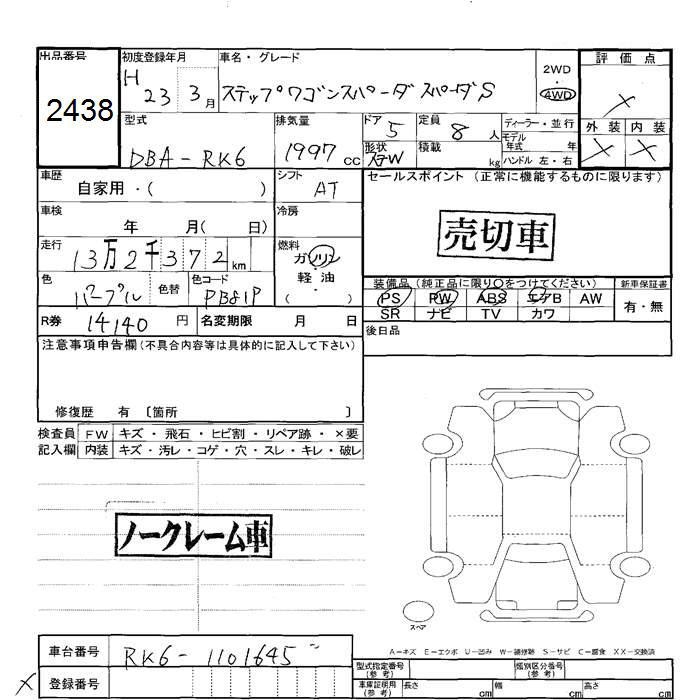 出品番号
2438
初度登録年月
H 23 3月
車名・グレード
ステップワゴンスパーダ スパーダS
2WD
・
4WD
評価点
×
外装 内装
× ×
型式
DBA-RK6
排気量
1997 cc
ドア 5
定員 8 人
ディーラー・並行
モデル年式 年
形状 ステW
積載 kg
ハンドル 左・右
車歴
自家用・( )
シフト
AT
セールスポイント (正常に機能するものに限ります)
売切車
車検
年 月( 日)
冷房
走行
13万2千372km
燃料
ガソリン
・
軽油
( )
色
パープル
色替
色コード
PB81P
装備品(純正品に限り○をつけてください)
新車保証書
PS PW ABS エアB AW
SR ナビ TV カワ
有・無
R券 14140 円
名変期限 月 日
後日品
注意事項申告欄(不具合内容等は具体的に記入して下さい)
修復歴 有 〔箇所 〕
検査員記入欄
FW キズ・飛石・ヒビ割・リペア跡・×要
内装 キズ・汚レ・コゲ・穴・スレ・キレ・破レ
ノークレーム車
スペア
A=キズ E=エクボ U=凹み W=補修跡 S=サビ C=腐食 XX=交換済
車台番号 RK6-1101645
× 登録番号
型式指定番号(参考)
類別区分番号(参考)
車庫証明用(参考) 長さ cm 幅 cm 高さ cm